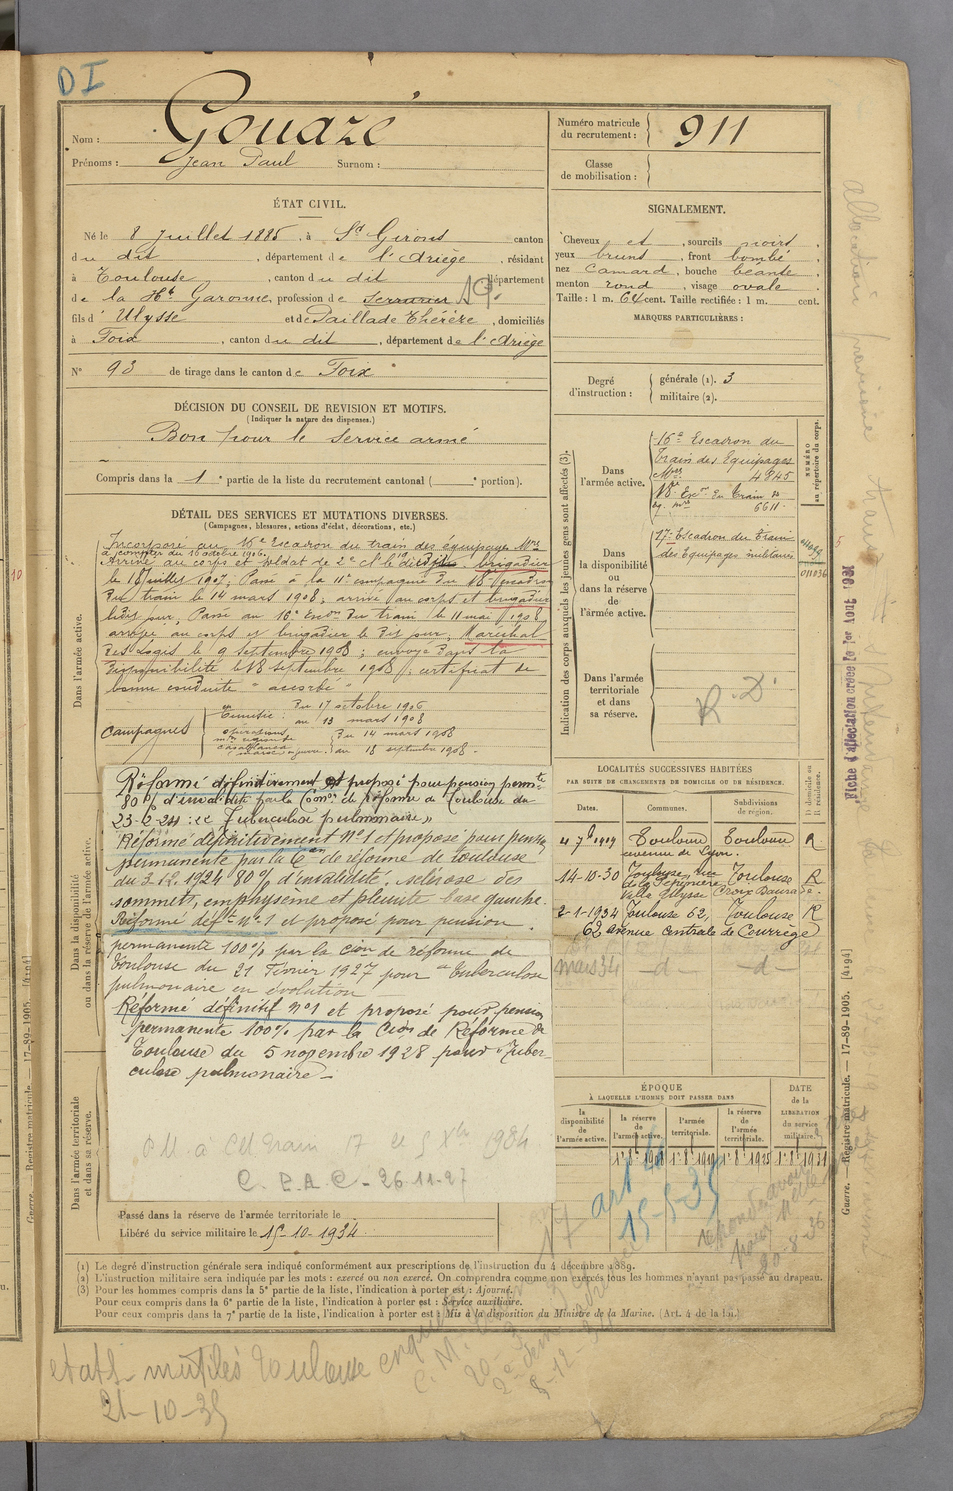 DI
Nom : Gouazé
Prénoms : Jean Paul Surnom :
Numéro matricule du recrutement : 911
Classe de mobilisation :
ÉTAT CIVIL.
Né le 8 Juillet 1885, à St Girons canton
du dit, département de l'Ariège, résidant
à Toulouse, canton du dit département
de la Hte Garonne, profession de Serrurier
fils d' Ulysse et de Paillade Thérèze, domiciliés
à Foix, canton du dit, département de l'Ariège
N° 93 de tirage dans le canton de Foix
SIGNALEMENT.
Cheveux et, sourcils noirs,
yeux bruns, front bombé,
nez camard, bouche béante,
menton rond, visage ovale.
Taille : 1 m. 64 cent. Taille rectifiée : 1 m. cent.
MARQUES PARTICULIÈRES :
Degré d'instruction : générale (1). 3
militaire (2).
DÉCISION DU CONSEIL DE REVISION ET MOTIFS.
(Indiquer la nature des dispenses.)
Bon pour le service armé
Compris dans la 1e partie de la liste du recrutement cantonal ( e portion).
DÉTAIL DES SERVICES ET MUTATIONS DIVERSES.
(Campagnes, blessures, actions d'éclat, décorations, etc.)
Dans l'armée active.
Incorporé au 16e Escadron du train des équipages Mres
à compter du 16 octobre 1906.
Arrivé au corps et soldat de 2e cl le dit jour. brigadier
le 18 juillet 1907; Passé à la 11e compagnie du 18e Escadron
du train le 14 mars 1908; arrivé au corps et brigadier
ledit jour, Passé au 16e Escon du train le 11 mai 1908
arrivé au corps et brigadier le dit jour, Maréchal
des logis le 9 septembre 1908; envoyé dans la
disponibilité le 18 septembre 1908; certificat de
bonne conduite "accordé"
Campagnes
en Tunisie : du 17 octobre 1906
au 13 mars 1908
opérations
Casablanca
du 14 mars 1908
au 18 septembre 1908.
Dans la disponibilité ou dans la réserve de l'armée active.
Réformé définitivement et proposé pour pension permte
80% d'invalidité par la Comon de Réforme de Toulouse du
23-2-24 : "Tuberculose pulmonaire"
Réformé définitivement N°1 et proposé pour pension
permanente par la Con de réforme de Toulouse
du 3.12.1924 80% d'invalidité, sclérose des
sommets, emphysème et pleurite base gauche.
Réformé déft n°1 et proposé pour pension
permanente 100% par la Cion de réforme de
Toulouse du 21 Février 1927 pour "Tuberculose
pulmonaire en évolution
Réformé définitif n°1 et proposé pour pension
permanente 100% par la Cion de Réforme de
Toulouse du 5 novembre 1928 pour "Tuber-
culose pulmonaire -
C.P.A.C - 26.11.27
Dans l'armée territoriale et dans sa réserve.
Passé dans la réserve de l'armée territoriale le
Libéré du service militaire le 15-10-1934
Indication des corps auxquels les jeunes gens sont affectés (3).
NUMÉRO au répertoire du corps.
Dans l'armée active.
16e Escadron du
Train des Equipages
Mres 4845
18e Escon du Train
6611
Dans la disponibilité ou dans la réserve de l'armée active.
17e Escadron du Train
des Equipages militaires
011036
Dans l'armée territoriale et dans sa réserve.
R.D.
LOCALITÉS SUCCESSIVES HABITÉES
PAR SUITE DE CHANGEMENTS DE DOMICILE OU DE RÉSIDENCE.
Dates. Communes. Subdivisions de région. D domicile ou R résidence.
4 7b 1919 Toulouse Toulouse R
avenue de Lyon.
14-10-30 Toulouse, rue Toulouse R
de la Pépinière
Villa Ulysse Croix Daurade.
2-1-1934 Toulouse 62, Toulouse R
62 avenue centrale de Courrège
mars 34 -d- -d-
ÉPOQUE
À LAQUELLE L'HOMME DOIT PASSER DANS
la disponibilité de l'armée active.
la réserve de l'armée active.
l'armée territoriale.
la réserve de l'armée territoriale.
DATE de la LIBÉRATION du service militaire.
1-8b 1908 1-8b 1919 1-8b 1925 1-8b 1931
art 4
15-5-35
20-8-36
(1) Le degré d'instruction générale sera indiqué conformément aux prescriptions de l'instruction du 4 décembre 1889.
(2) L'instruction militaire sera indiquée par les mots : exercé ou non exercé. On comprendra comme non exercés tous les hommes n'ayant pas passé au drapeau.
(3) Pour les hommes compris dans la 5e partie de la liste, l'indication à porter est : Ajourné.
Pour ceux compris dans la 6e partie de la liste, l'indication à porter est : Service auxiliaire.
Pour ceux compris dans la 7e partie de la liste, l'indication à porter est : Mis à la disposition du Ministre de la Marine. (Art. 4 de la loi.)
etats mutilés Toulouse
21-10-35
Fiche d'affectation créée le 1er Aout 1921
Guerre. — Registre matricule. — 17-89-1905. [4194]
Guerre. — Registre matricule. — 17-89-1905. [4194]